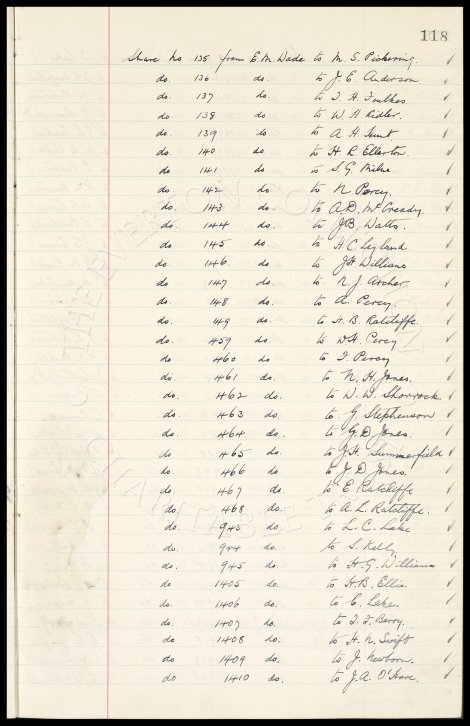 118
Share No 135 from E M Dade to M. S. Pickering.
do. 136 do. to J. E. Anderson
do. 137 do. to T. H. Foulkes
do. 138 do. to W. A Ridler.
do. 139 do. to A H Hunt
do. 140 do. to H R. Ellerton.
do. 141 do. to S. G. Milne.
do. 142 do to N Percy.
do. 143 do. to A. D. McCready.
do. 144 do. to J. B. Watts.
do. 145 do to H. C. Leyland
do. 146 do. to J H Williams
do. 147 do. to N. J. Archer.
do. 148 do. to A. Percy.
do. 149 do. to H. B. Ratcliffe.
do. 459 do. to D H. Percy
do. 460 do to T. Percy
do. 461 do. to N. H. Jones.
do. 462 do. to W. W. Shorrock.
do. 463 do. to G. Stephenson
do. 464 do. to G. D Jones.
do. 465 do. to J. H. Summerfield
do. 466 do. to J. D Jones.
do. 467 do. to E. Ratcliffe
do. 468 do. to A. L. Ratcliffe.
do. 943 do. to L. C. Lake
do. 944 do. to S. Kelly.
do. 945 do. to H. G. Williams
do. 1405 do. to H. B. Ellis.
do. 1406 do. to C. Lake.
do. 1407 do. to T. F. Berry.
do. 1408 do. to H. N. Swift
do 1409 do. to J. Newborn.
do 1410 do. to J. A. O'Hare.